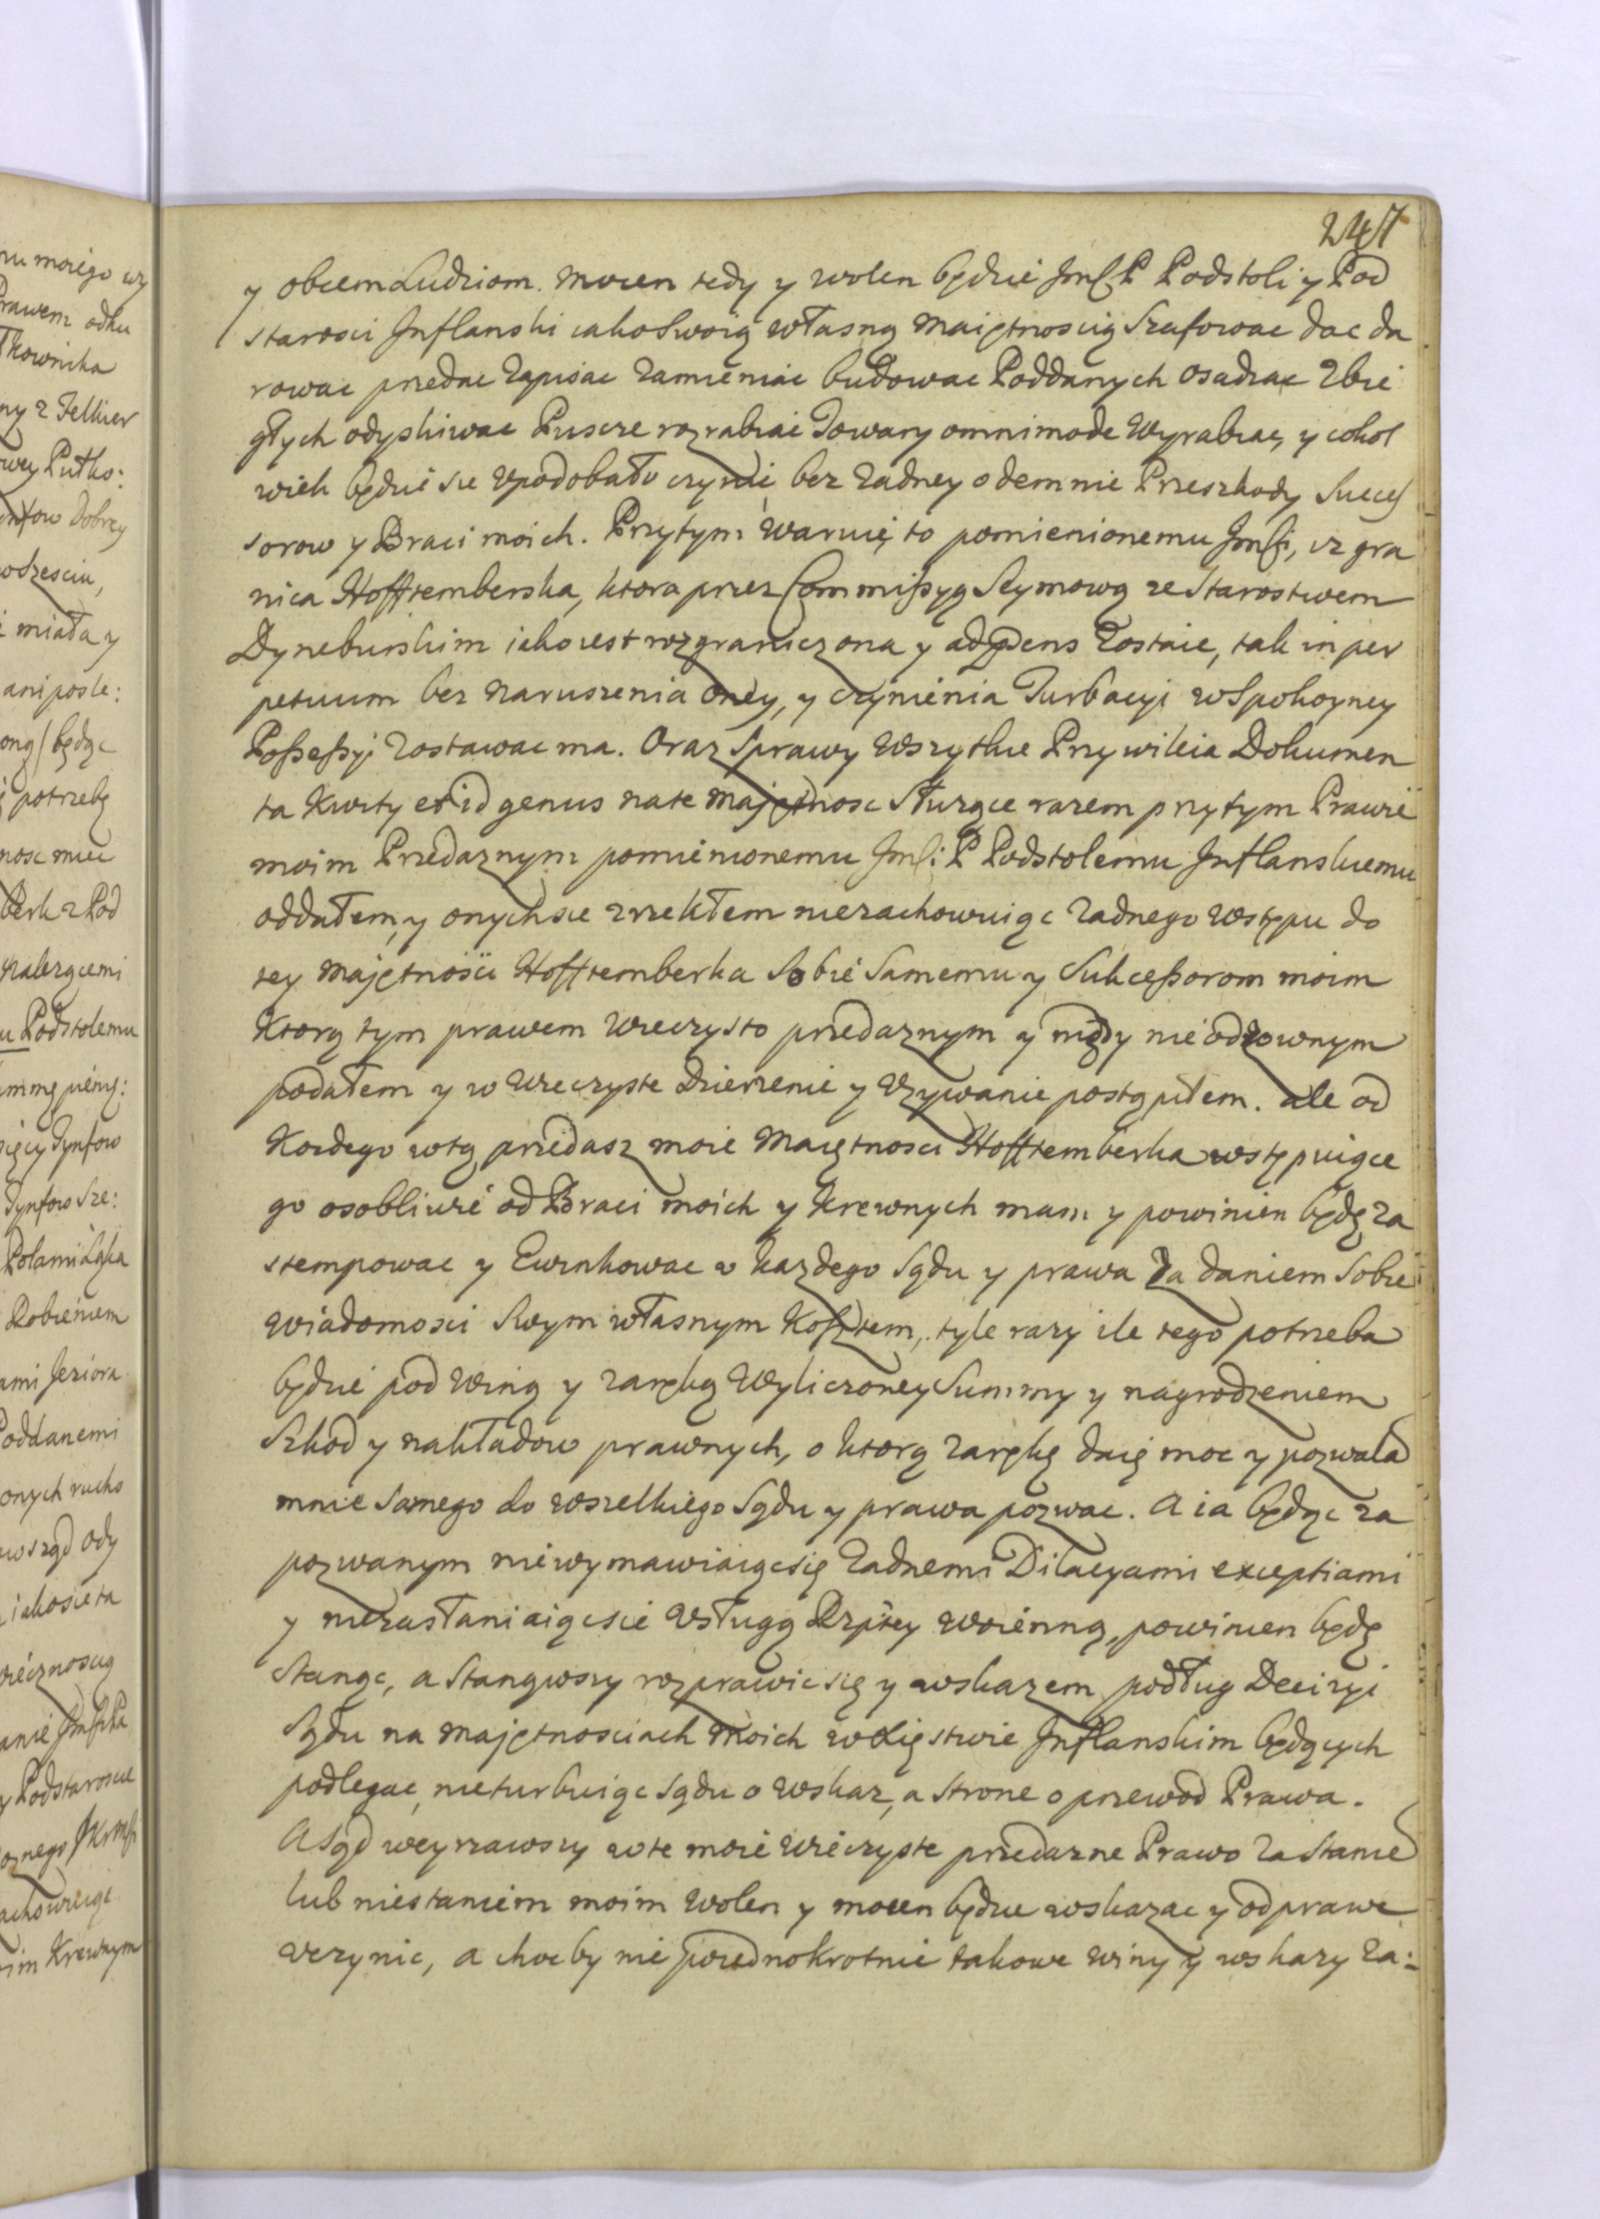 247
y obcem Ludziom. Mocen tedy y wolen będzie Jmsc P Podstoli y Pod
starosci Inflanski iako Swoią własną Maiętnoscią Szafowac dac da
rowac przedac Zapisac Zamieniac budowac Poddanych osadzac Zbie
głych odyskiwac Puscze rozrabiac Towary omnimode Wyrabiac, y cokol
wiek będzie sie Upodobało czynić, bez Zadney odemnie Przeszkody Succes
sorow y Braci moich. Przytym Waruię to pomienionemu Jmsci, iz gra
nica Hofftemberska, ktora przez Commissyą Seymową ze Starostwem
Dyneburskim iako iest rozgraniczona y ad psens Zostaie, tak in per
petuum bez naruszenia oney, y czynienia Turbacyi w Spokoyney
Possessyi Zostawac ma. Oraz Sprawy Wszytkie Przywileia Dokumen
ta Kwity et id genus na te Majętnosc Służące razem przytym Prawie
moim Przedaznym pomienionemu Jmsci P Podstolemu Inflanskiemu
oddałem, y onych sie zrzekłem niezachowuiąc Zadnego Wstępu do
tey Majętnosci Hofftemberka Sobie Samemu y Sukcessorom moim
Ktorą tym prawem Wieczysto przedaznym y nigdy nieodzownym
podałem y w Wieczyste Dzierzenie y Uzywanie postąpiłem. ale od
Kozdego w tą przedasz moie Maiętnosci Hofftemberka wstępuiące
go osobliwie od Braci moich y Krewnych mam y powinien będę za
stempowac y Ewinkowac u kazdego Sądu y prawa Za daniem Sobie
wiadomosci Swym własnym Kosztem, tyle razy ile tego potrzeba
będzie pod Winą y zaręką Wyliczoney Summy y nagrodzeniem
Szkod y nakładow prawnych, o ktorą zarękę daię moc y pozwala
mnie Samego do wszelkiego Sądu y prawa pozwac. A ia będąc za
pozwanym niewymawiaiącsię Zadnemi Dilacyami exceptiami
y niezasłaniaiącsie Usługą Rzptey Woienną, powinien będę
Stanąc, a Stanąwszy rozprawic się y wskazem podług Decizyi
Sądu na Majętnosciach Moich w Xięstwie Inflanskim będących
podlegac, nieturbuiąc Sądu o Wskaz, a Strone o przewod Prawa.
A Sąd weyrzawszy w te moie Wieczyste przedazne Prawo Za Stanie
lub niestaniem moim Wolen y mocen będzie wskazac y odprawe
uczynic, a choc by nie jednokrotnie takowe winy y wskazy Za: